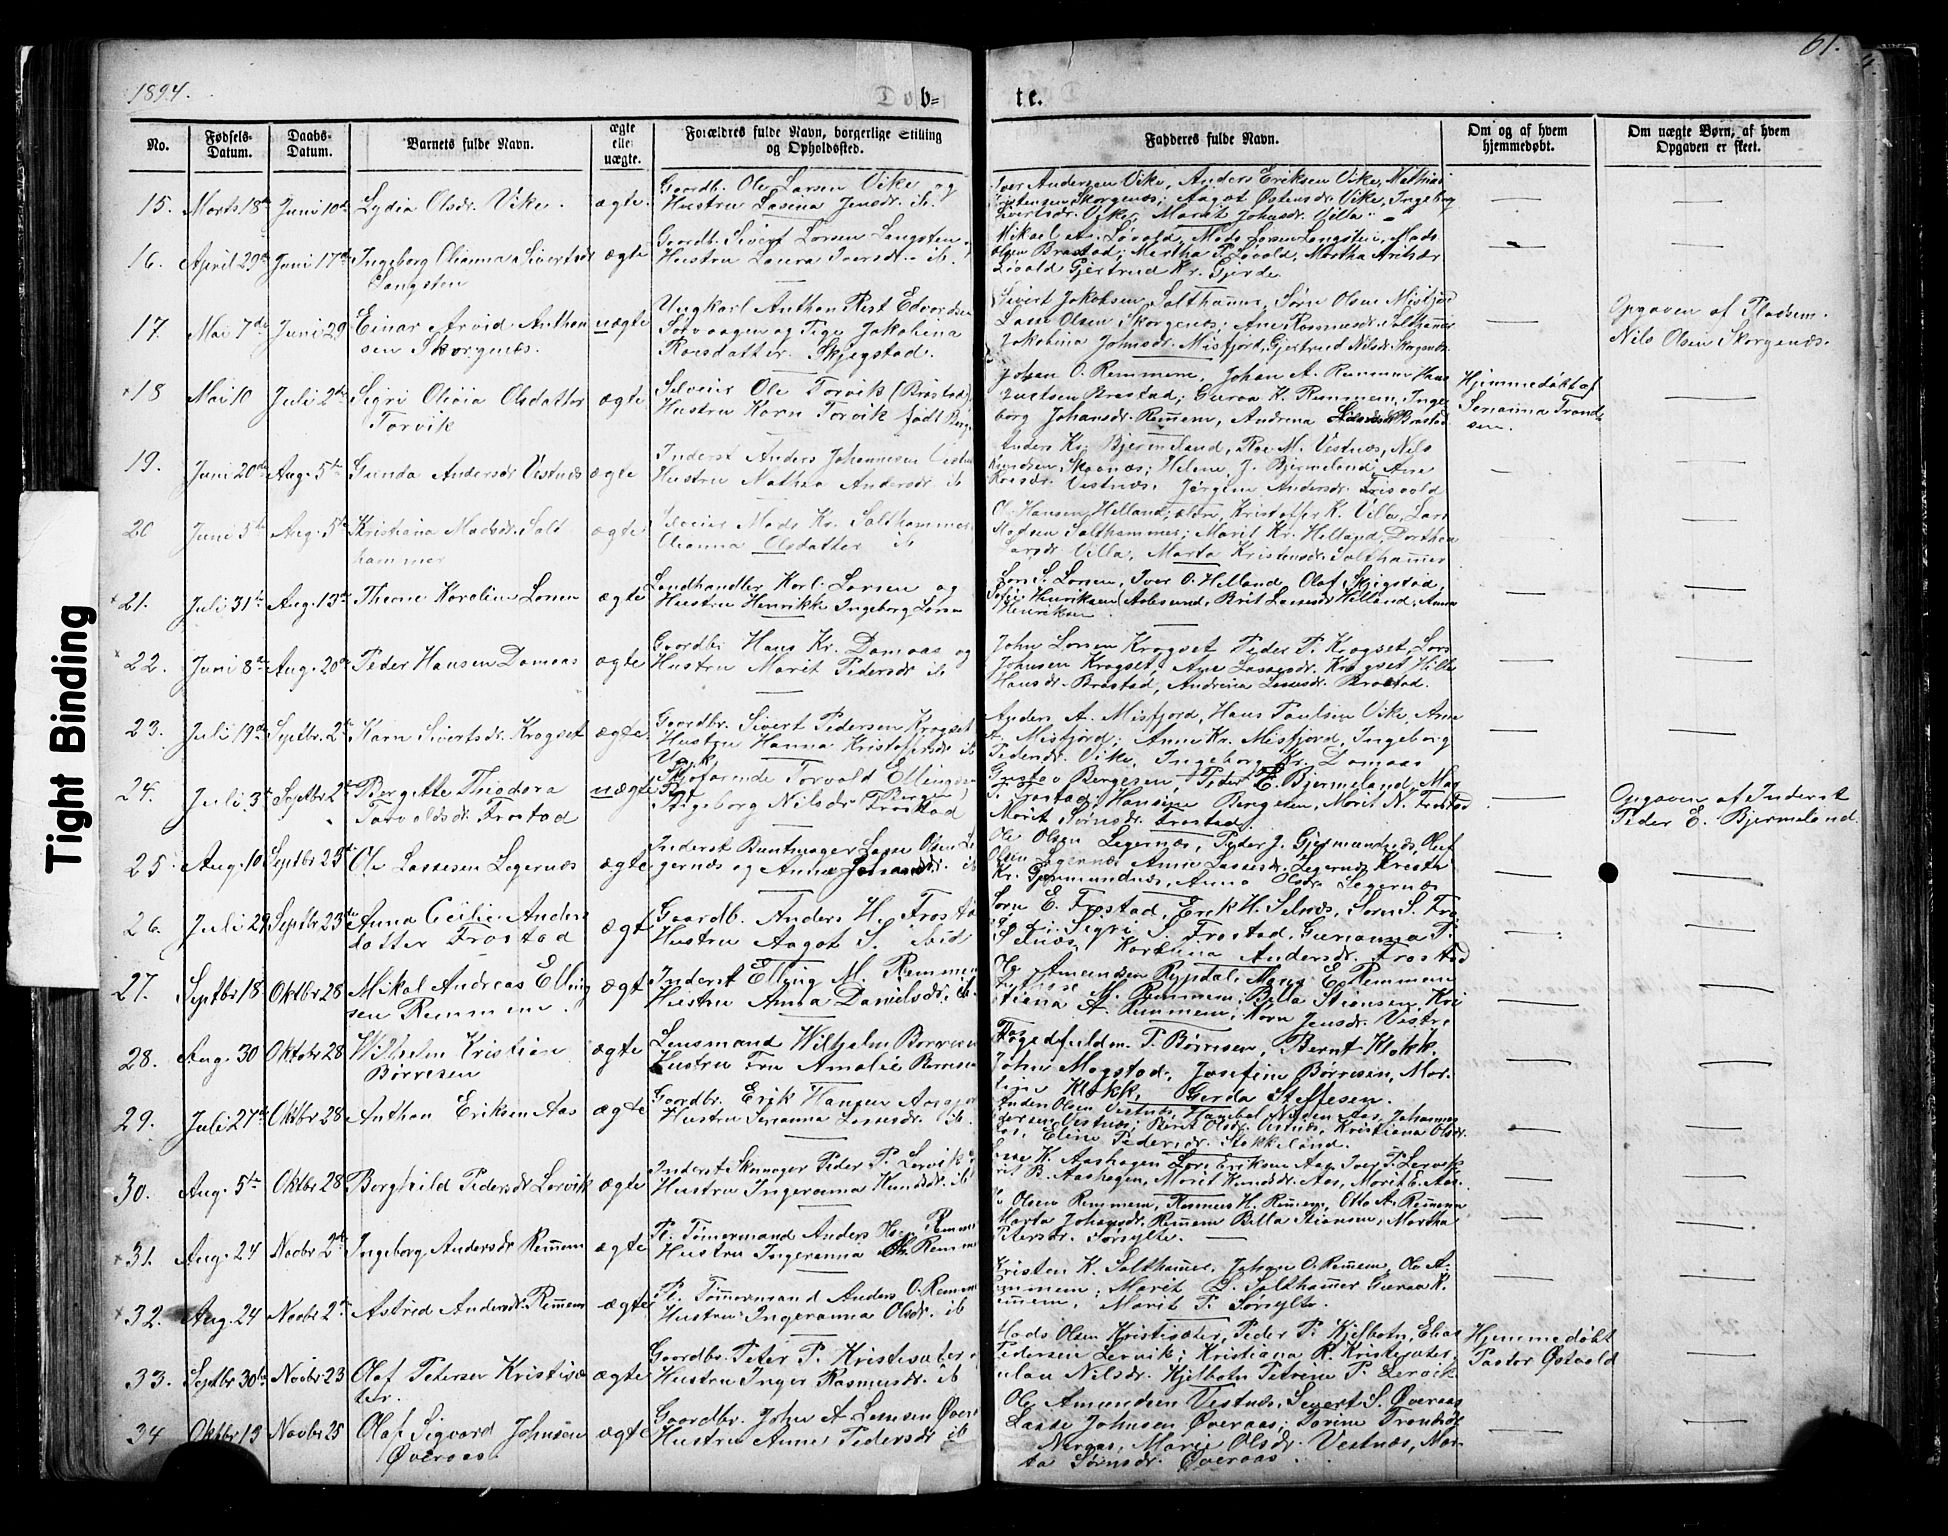 61.
1894.
Døb=
te.
No.
Fødsels-Datum.
Daabs-Datum.
Barnets fulde Navn.
ægte eller uægte.
Forældres fulde Navn, borgerlige Stilling og Opholdssted.
Fadderes fulde Navn.
Om og af hvem hjemmedøbt.
Om uægte Børn, af hvem Opgaven er skeet.
15. Marts 18de Juni 10de Lydia Olsdr. Vike. ægte. Gaardb. Ole Larsen Vike og
Hustru Lasina Jensdr. ib.
Iver Andersen Vike, Anders Eriksen Vike, Mathias
Kristensen Skorgenæs; Aagot Østensdr. Vike, Ingeborg
Sivertsdr. Vike, Marit Johnsdr. Villa
16. April 29de Juni 17de Ingeborg Olianna Sivertsdr ægte Gaardb. Sivert Larsen Langsten
Langsten
Hustru Laura Iversdr. ib.
Mikael A. Løvold, Mads Larsen Langsten, Mads
Olsen Brastad; Martha P. Løvold, Martha
Løvold Gjertrud Kr. Gjerde
17. Mai 7de Juni 29 Einar Arvid Anthon uægte Ungkarl Anthon Rist Edvardsen
sen Skorgenes.
Sølvaagen og Pige Jakobina
Roasdatter Skjegstad.
Sivert Jakobsen Salthammer, Sørn Olsen Misfjord
Lasse Olsen Skorgenæs; Ane Rasmusdr. Salthammer
Jakobina Johnsdr. Misfjord, Gjertrud Nilsdr. Skorgenæs
Opgaven af Pladsm.
Nils Olsen Skorgenæs.
18 Mai 10 Juli 2den Sigri Olivia Olsdatter ægte Selveier Ole Torvik (Brastad)
Torvik
Hustru Karn Torvik født Berge
Johan O. Remmem, Johan A. Remmem Hans
Brastad; Guroa K. Remmem, Inge
borg Johansdr. Remem, Andrena Brastad
Hjemmedøbt af
Serianna Trond-
sen.
19. Juni 20de Aug. 5te Gunda Andersdr Vestnæs ægte Inderst Anders Johannesen Vestnæs
Hustru Mathea Andersdr. ib
Anders Kr. Bjermeland, Roe M. Vestnæs, Nils
Knudsen Skaanæs; Helene J. Bjermeland, Ane
Vestnæs, Jørgine Andersdr. Frisvold
20 Juni 5te Aug. 5te Kristiana Madsdr. Salt ægte Selveier Mads Kr. Salthammer
hammer
Olianna Olsdatter ib
O. Hansen Helland, ældre, Kristoffer K. Villa, Lars
Madsen Salthammer; Marit Kr. Helland, Dorthea
Larsdr. Villa, Marta Kristensdr. Salthammer
21. Juli 31te Aug. 13de Theone Karoline Larsen ægte Landhandler Karl Larsen og
Hustru Henrikke Ingeborg Larsen
Lars S. Larsen, Iver O. Helland, Olaf Skjegstad,
Sofie Henriksen (Aalesund, Brit Lassesdr Helland, Anna
Henriksen
22. Juni 8de Aug. 20de Peder Hansen Damaas ægte Gaardbr Hans Kr. Damaas og
Hustru Marit Pedersdr ib
John Larsen Kragset Peder P. Kragset, Lars
Johnsen Kragset, Ane Lassesdr. Kragset Hilla
Hansdr. Brastad, Andrina Lassesdr. Brastad.
23. Juli 19de Septbr. 2den Karn Sivertsdr. Kragset ægte Gaardbr. Sivert Pedersen Kragset
Hustru Hanna Kristoffersdr ib
Anders A. Misfjord, Hans Paulsen Vike, Arne
A. Misfjord; Anne Kr. Misfjord, Ingeborg
Pedersdr. Vike, Ingeborg Kr. Damaas
24. Juli 3. Septbr 2den Bergitte Theodora uægte Ugk. Sjøfarende Torvald Ellingsen
Torvaldsdr. Frostad
Ingeborg Nilsdr. Frostad
Gustav Bergesen, Peder E. Bjermeland, Mar
Frostad; Hansine Bergesen, Marit N. Frostad
Marit Sørnsdr. Frostad.
Opgaven af Inderst
Peder E. Bjermeland.
25. Aug. 10 Septbr 23de Ole Lassesen Legernæs ægte Inderst Buntmager Lasse Olsen Le
gernæs og Anna ib
Ole Olsen Legernæs, Peder J. Gjermundnæs, Oluf
Olsen Legernæs Anne Lassesdr. Legernæs Kresta
Kr. Gjermundnæs, Anna Olsdr. Legernæs
26. Juli 29 Septbr 23de Anna Cecilie Anders ægte Gaardb. Anders H. Frostad
datter Frostad
Hustru Aagot S. ibid
Sørn E. Frostad, Erik H. Selnæs, Sørn S. Fro
Sigri S. Frostad, Gurianna P.
Selnæs, Karolina Andersdr. Frostad
27. Septbr 18 Oktbr 28 Mikal Andreas Elling ægte Inderst Elling M. Remmem
sen Remmem.
Hustru Anna Danielsdr. ib.
Ole Amundsen Rypdal, Mons E. Remmem
M. Remmem; Billa Stiansen, Kri
stiana A. Remmem, Karn Jensdr. Vestre
28. Aug. 30 Oktobr 28 Wilhelm Kristian ægte Lensmand Wilhjelm Børresen
Børresen
Hustru Fru Amalie Børresen
Fogedfuldm. P. Børresen, Bernt Klokk,
John Mogstad, Josefine Børresen, Mar-
Klokk, Gerda Steffesen.
29. Juli 27de Oktbr 28 Anthon Eriksen Aas ægte Gaardbr. Erik Hansen Aas og
Hustru Serianna Lassesdr. ib.
Anden Olsen Vestnæs, Hagbal Nilsen Aas, Johannes
Pedersen Vestnæs; Berit Olsdr. Vestnæs, Kristiana Olsdr.
Aas, Eline Pedersdr. Stokkeland.
30. Aug. 5te Oktbr 28 Borghild Pedersdr Lervik ægte Inderst Skomager Peder P. Lervik
Hustru Ingeranna Knudsdr. ib
K. Aashagen Lars Eriksen Aas, Iver P. Lervik
B. Aashagen, Marit Knudsdr. Aas, Marit E. Aas.
31. Aug. 24 Novbr 2den Ingeborg Andersdr Remem ægte P. Tømermand Anders Remmem
Hustru Ingeranna Remmem
Olsen Remmem, Rasmus H. Remem, Otto A. Remmem
Marta Johansdr. Remem Billa Stiansen, Martha
Petersdr. Sørsylte.
32. Aug. 24 Novbr 2den Astrid Andersdr. Remem ægte P. Tømmermand Anders O. Remmem
Hustru Ingeranna Olsdr. ib
Kristen K. Salthammer, Johan O. Remem, Ole A.
Remmem; Marit L. Salthammer Guroa K.
Remmem, Marit P. Sørsylte.
33. Septbr 30te Novbr 23 Olaf Petersen Kristisæ ægte Gaardbr. Peter P. Kristisæter
ter.
Hustru Inger Rasmusdr. ib
Mads Olsen Kristisæter, Peder P. Kjelbotn, Elias
Pedersen Lervik; Kristiana R. Kristisæter,
Nilsdr. Kjelbotn Petrine P. Lervik
Hjemmedøbt
Pastor Østvold
34 Oktbr 13 Novbr 25 Olaf Sigvard Johnsen ægte Gaardbr. John A. Lassesen Øveraas
Øveraas.
Hustru Anne Pedersdr ib
Ole Amundsen Vestnæs, Sivert S. Øveraas
Lasse Johnsen Øveraas; Torine Trondsdr
Nergaas, Marie Olsdr. Vestnæs, Mar-
ta Sørnsdr. Øveraas.
Tight Binding